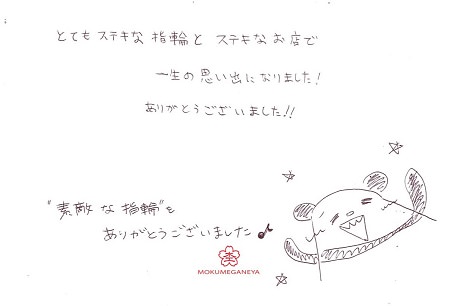 とても ステキな 指輪と ステキな お店で
一生の 思い出に なりました!
ありがとうございました!!
"素敵な指輪"を
ありがとうございました♪
MOKUMEGANEYA